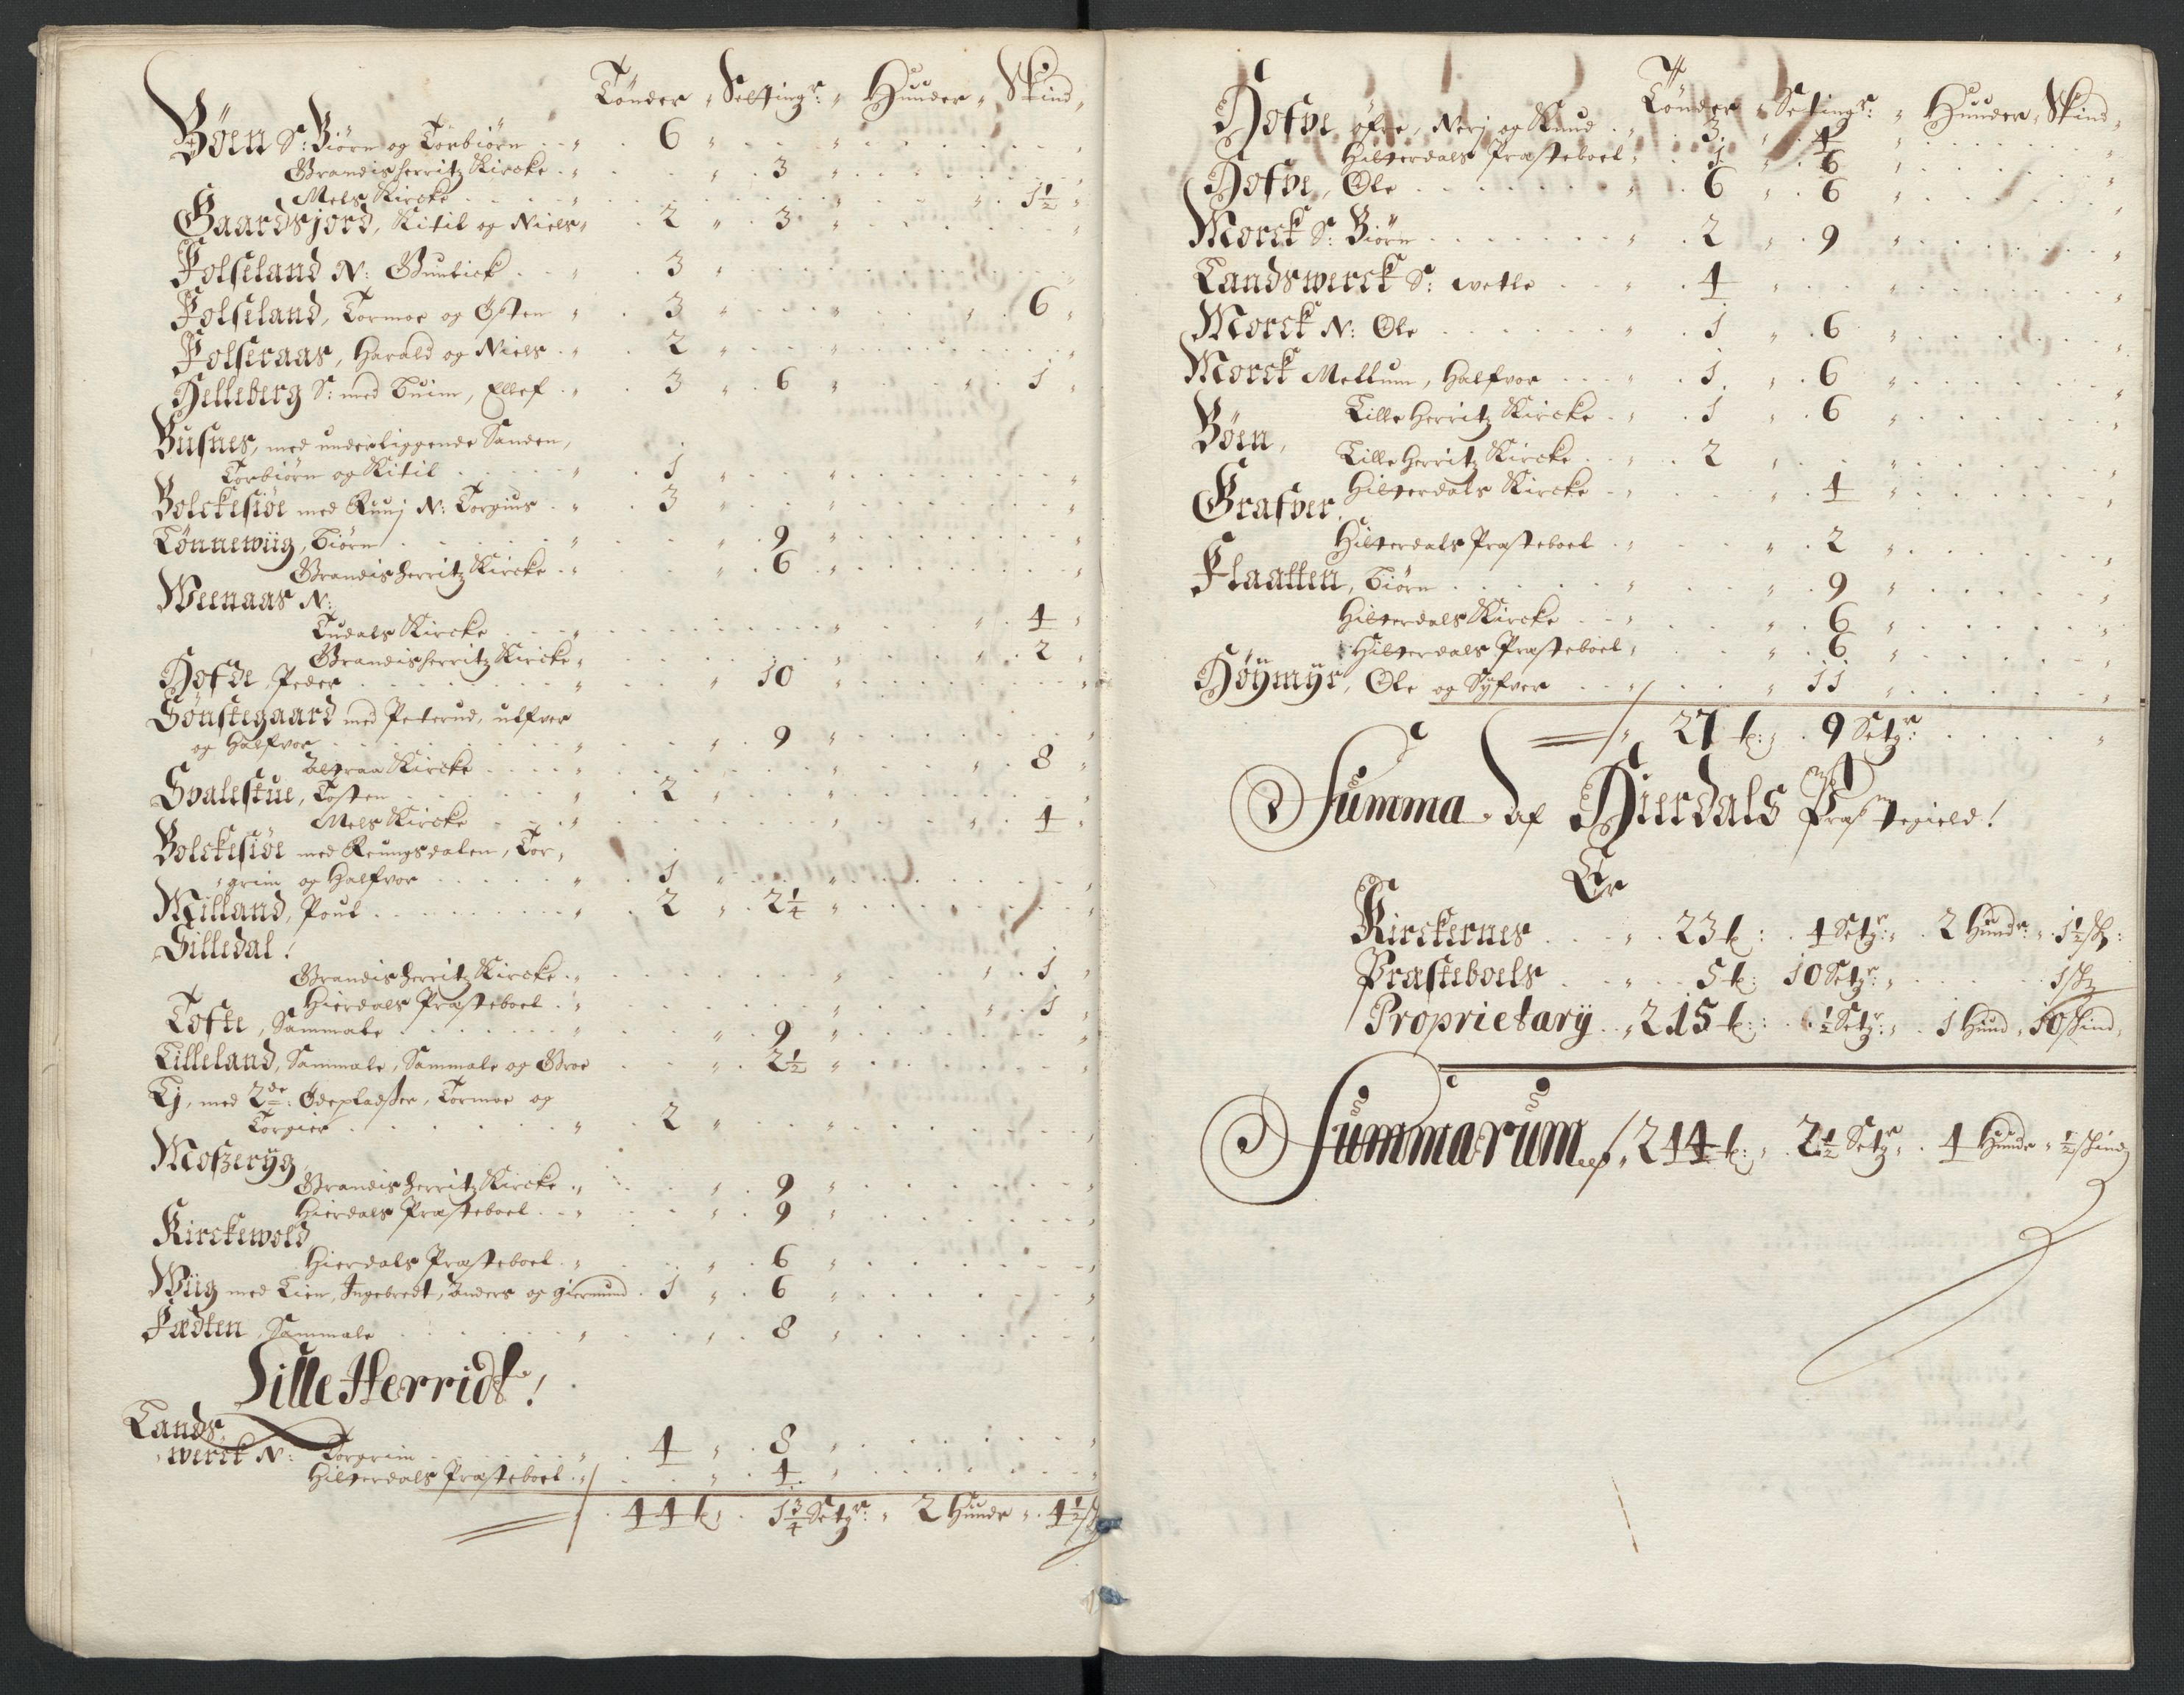 Tönder " Settingr: " Hunder " Skind "
Böen S: Biörn og Torbiörn . . " 6 "
Grandisherritz Kircke . " . . " . 3 "
Mels Kircke . . . . " . 1½ "
Gaardsjord, Kitil og Niels " . 2 " . 3 "
Folseland N: Gunbick . . " . 3 "
Folseland, Tormoe og Østen " . 3 " . . " . 6 "
Folseraas, Harald og Niels . " . 2 "
Helleberg S: med Buim, Ellef . " . 3 " . 6 " . . " . 1 "
Busnes, med underliggende Sanden,
Torbiörn og Kitil . . . . " . 1 "
Bolckesiöe med Ruuj N: Torgius . " . 3 "
Tönnewiig, Biörn . . . . " . . " . 9 "
Grandisherritz Kircke . " . . " . 6 "
Weenaas N:
Tudals Kircke . . . " . 4 "
Grandisherritz Kircke " . . . " . 2 "
Hofde, Peder . . . . . " . . " 10 "
Sönstegaard med Peterud, ulfver
og Halfvor . . . . . " . . " . 9 "
Atraa Kircke . . . . " . . . " . 8 "
Svalestue, Tosten . . . . " . 2 "
Mels Kircke . . . " . . . " . 4 "
Bolckesiöe med Reungsdalen, Tor,
"grim og Halfvor . . . . " . 1 "
Milland, Poul . . . . . " . 2 " . 2¼ "
Silledal !
Grandisherritz Kircke . " . . . " . 1 "
Hierdals Præsteboel . " . . . " . 1 "
Tofte, Sammale . . . . " . . " . 9 "
Lilleland, Sammale, Sammale og Groe . . " . 2½ "
Lj, med 2de: Ödepladser, Tormoe og
Torgier . . . . . " . 2 "
Moszeryg
Grandisherritz Kircke . " . . " . 9 "
Hierdals Præsteboel . . " . . " . 9 "
Kirckewold
Hierdals Præsteboel . " . . " . 6 "
Wiig med Lien, Ingebredt, Anders og giermund . 1 " . 6 "
Fædten, Sammale . . . . " . . " . 8 "
Lille Herridt !
Lands,
"werck N: Torgrim . . . . " 4 " . 8 "
Hitterdals Præsteboel . " . . " . 4 "
44 t: . 1¾ Setgr: " 2 Hundr " . 4½ sk
Tönder " Setingr: " Hunder " Skind "
Hofde öfre, Nerj og Knud . " . 3 . " . 4 "
Hitterdals Præsteboel " . 1 " . 6 "
Hofde, Ole . . . . . " . 6 " . 6 "
Morck S: Biörn . . . . " . 2 " . 9 "
Landswerck S: wetle . . " . 4 "
Morck N: Ole . . . . . " . 1 " . 6 "
Morck Mellum, Halfvor . . " . 1 . " . 6 "
Lille Herritz Kircke . " . 1 " . 6 "
Böen,
Lille Herritz Kircke . . " . 2 "
Hitterdals Kircke . . " . . " . 4 "
Grafver,
Hitterdals Præsteboel . " . . " . 2 "
Flaatten, Biörn . . . . " . . " . 9 "
Hitterdals Kircke . . " . . " . 6 "
Hitterdals Præsteboel " . . " . 6 "
Höymyr, Ole og Syfver . . " . . " 11 "
27 t: " . 9 Setgr:
Summa af Hierdals Præstegield !
Er
Kirckernes . . " . 23 t: . 4 Setgr: " . 2 Hundr: " . 1½ sk:
Præsteboels . . " . . 5 t: 10 Setgr: " . . . 1 sk
Proprietary . . " 215 t: . ½ Setgr: " . 1 Hund, 10 skind,
Summarum " 244 t: " . 2½ Setgr " . 4 Hundr " ½ skind